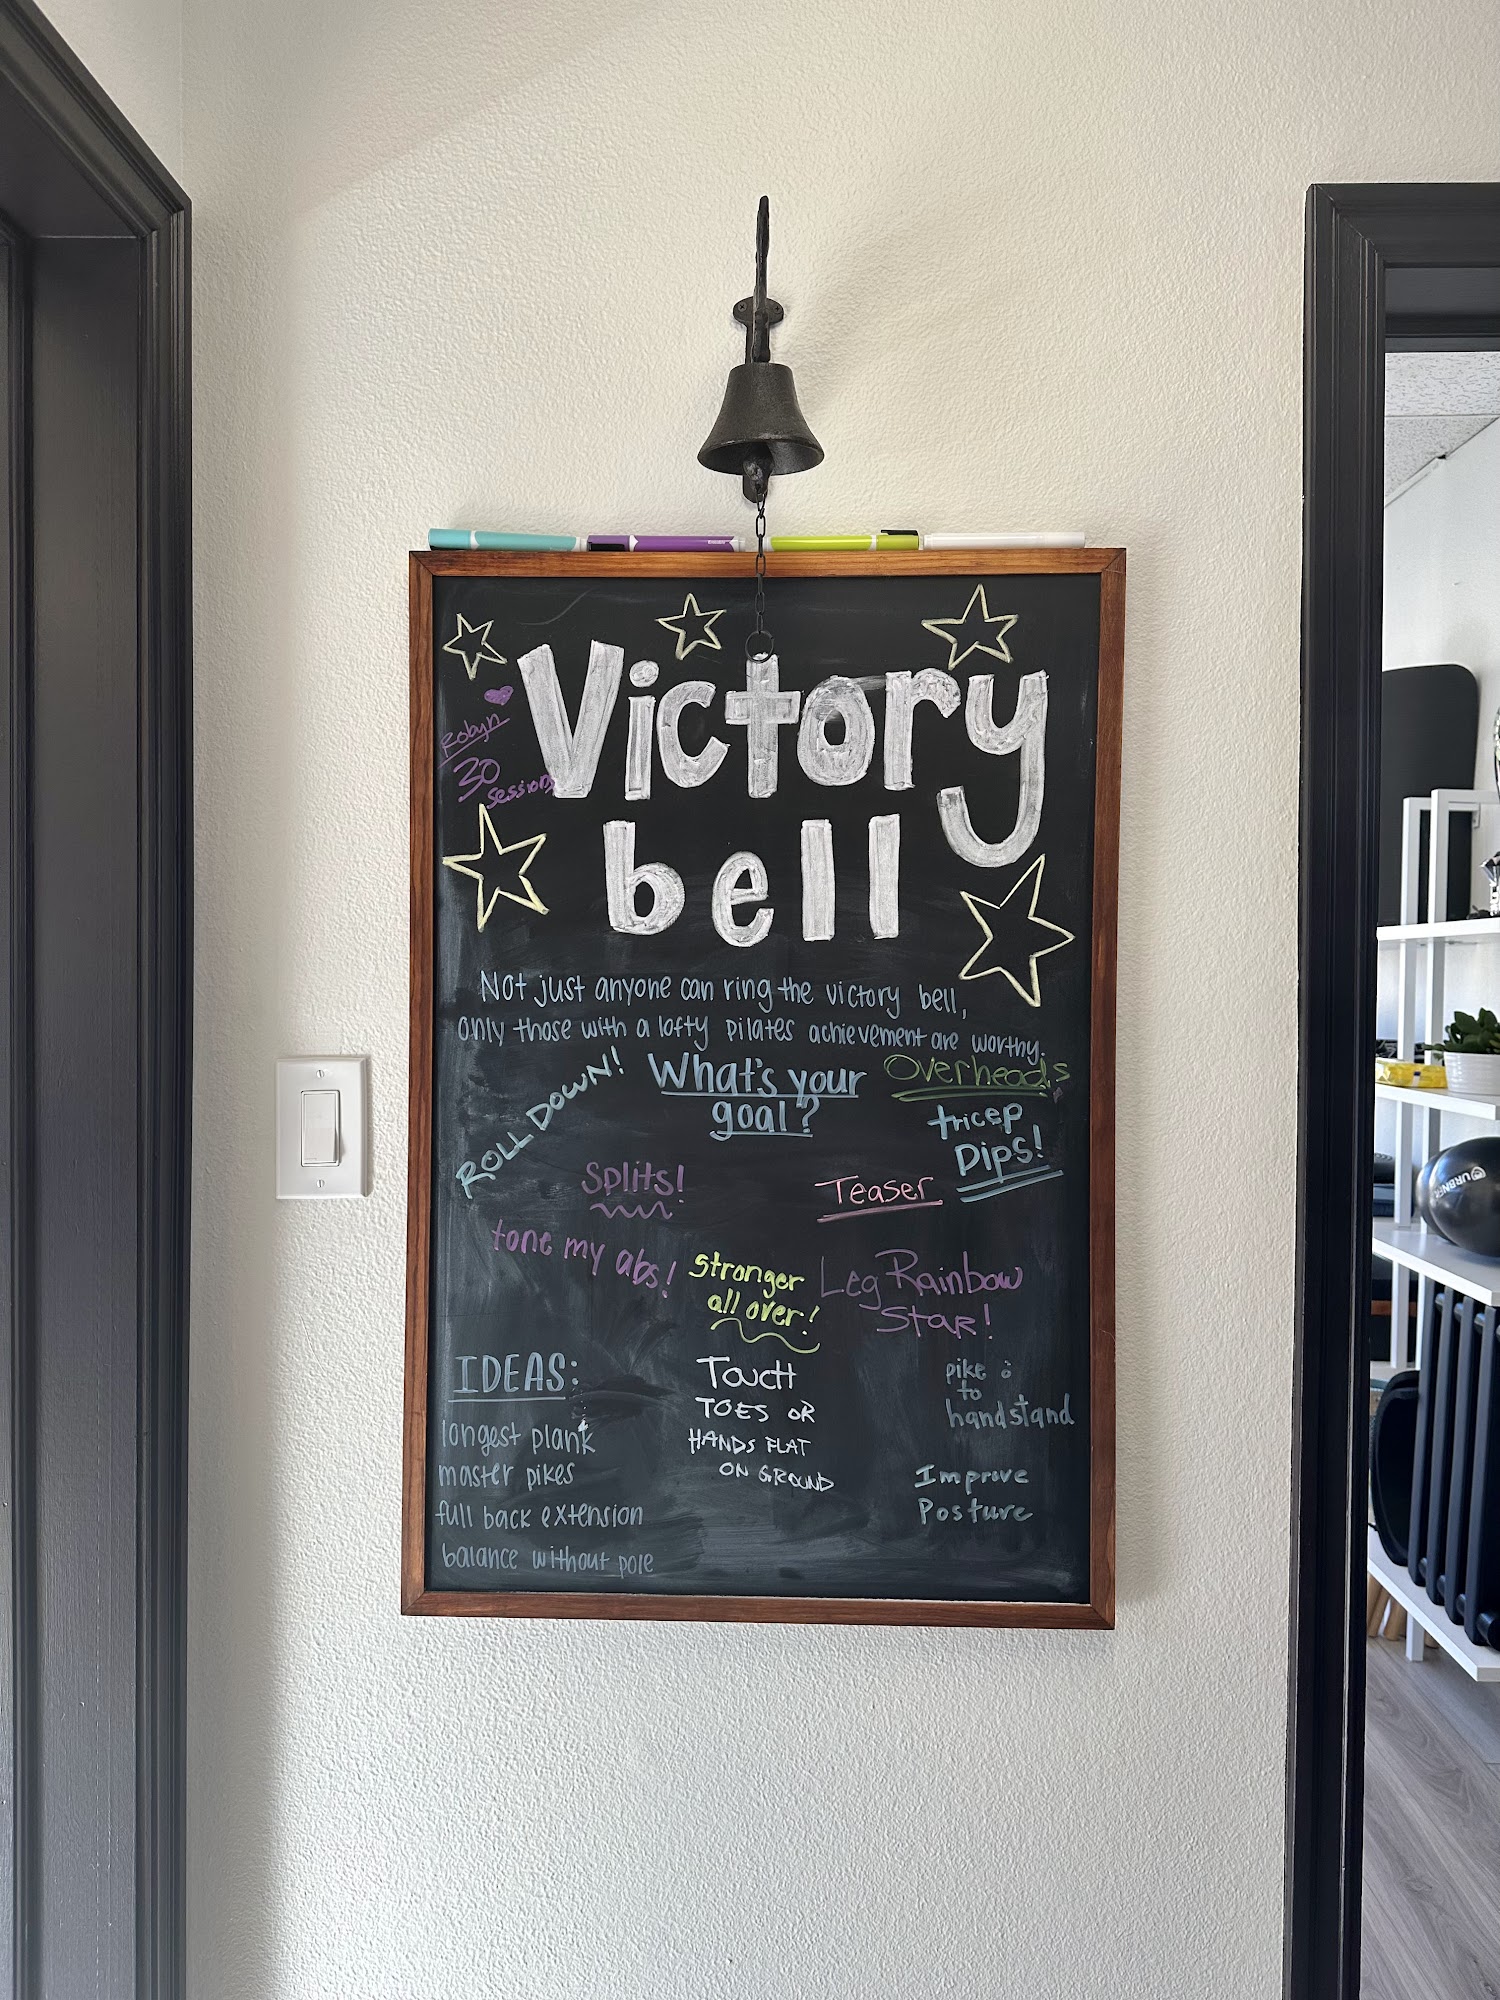 Victory
bell
Robyn
30
sessions
Not just anyone can ring the victory bell,
only those with a lofty pilates achievement are worthy.
ROLL DOWN!
What's your
goal?
Overheads
tricep
Dips!
Splits!
Teaser
tone my abs!
stronger
all over!
Leg Rainbow
Star!
IDEAS:
longest plank
master pikes
full back extension
balance without pole
Touch
TOES OR
HANDS FLAT
ON GROUND
pike
to
handstand
Improve
Posture
URBNFit